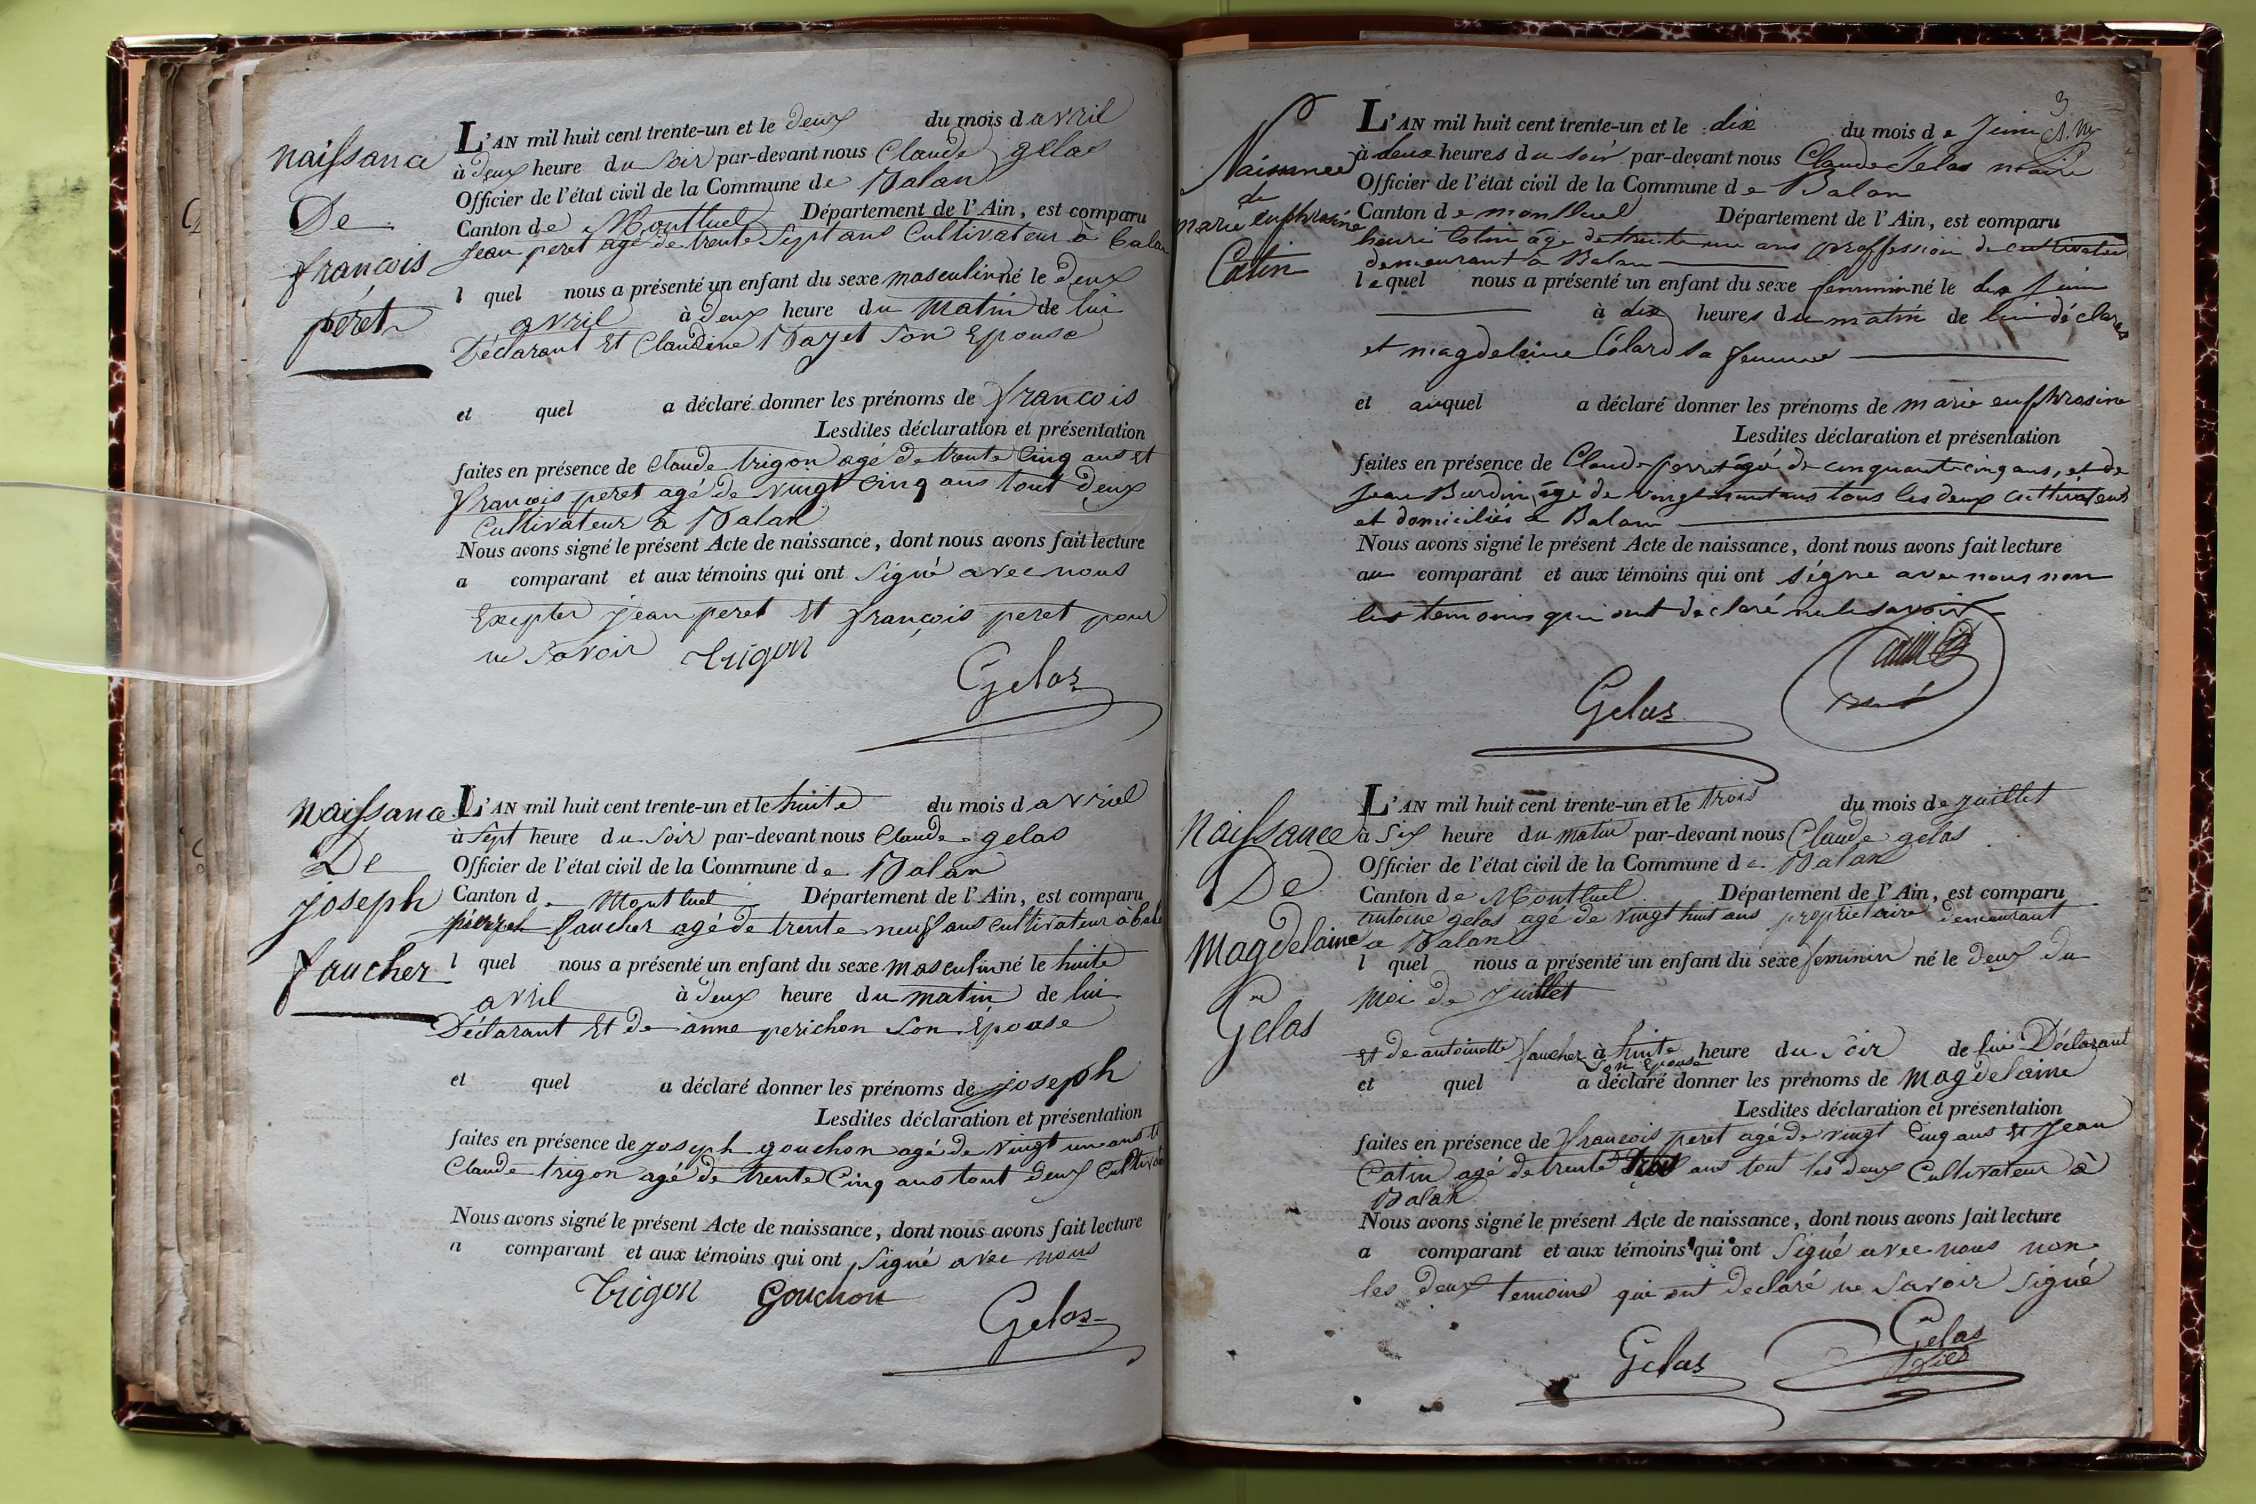 naissance
De
françois
péret
L'AN mil huit cent trente-un et le deux du mois d avril
à deux heure du soir par-devant nous Claude gelas
Officier de l'état civil de la Commune de Balan
Canton de Montluel Département de l'Ain, est comparu
Jean peret agé de trente sept ans Cultivateur à balan
l quel nous a présenté un enfant du sexe masculin né le deux
avril à deux heure du matin de lui
Déclarant Et Claudine Mayet son Epouse
et quel a déclaré donner les prénoms de françois
Lesdites déclaration et présentation
faites en présence de Claude trigon agé de trente Cinq ans Et
françois peret agé de vingt Cinq ans tout deux
Cultivateur a Balan
Nous avons signé le présent Acte de naissance, dont nous avons fait lecture
a comparant et aux témoins qui ont signé avec nous
Exepter jean peret Et françois peret pour
ne savoir Trigon
Gelas
naissance
De
joseph
faucher
L'AN mil huit cent trente-un et le huite du mois d avriel
à sept heure du soir par-devant nous Claude gelas
Officier de l'état civil de la Commune de Balan
Canton d Montluel Département de l'Ain, est comparu
faucher agé de trente neuf ans cultivateur à bala
l quel nous a présenté un enfant du sexe masculin né le huite
avril à deux heure du matin de lui
Déclarant Et de anne perichon son Epouse
et quel a déclaré donner les prénoms de joseph
Lesdites déclaration et présentation
faites en présence de joseph gouchon agé de vingt un ans Et
Claude trigon agé de trente Cinq ans tout deux Cultivat
Nous avons signé le présent Acte de naissance, dont nous avons fait lecture
a comparant et aux témoins qui ont signé avec nous
Trigon Gouchon
Gelas
3
Naissance
de
marie euphrosine
Catin
L'AN mil huit cent trente-un et le dix du mois de Juin
à deux heures du soir par-devant nous Claude Gelas maire
Officier de l'état civil de la Commune de Balan
Canton de montluel Département de l'Ain, est comparu
henri Catin âgé de trente un ans proffession de cultivateur
demeurant à Balan
lequel nous a présenté un enfant du sexe femminin né le dix Juin
à dix heures du matin de lui déclarant
et magdeleine Colard sa femme
et auquel a déclaré donner les prénoms de marie euphrosine
Lesdites déclaration et présentation
faites en présence de Claude perret âgé de cinquante cinq ans, et de
Jean Burdin âgé de vingt huit ans tous les deux cultivateurs
et domiciliés a Balan
Nous avons signé le présent Acte de naissance, dont nous avons fait lecture
au comparant et aux témoins qui ont signe avec nous non
les temoins qui ont déclaré ne le savoir
Gelas
naissance
De
Magdelaine
Gelas
L'AN mil huit cent trente-un et le trois du mois de juillet
à six heure du matin par-devant nous Claude gelas
Officier de l'état civil de la Commune de Balan
Canton de Montluel Département de l'Ain, est comparu
antoine gelas agé de vingt huit ans proprietaire demeurant
a Balan
l quel nous a présenté un enfant du sexe feminin né le deux du
moi de Juillet
et de antoinette faucher à huite heure du soir de lui Déclarant
son Epouse
et quel a déclaré donner les prénoms de magdelaine
Lesdites déclaration et présentation
faites en présence de françois peret agé de vingt Cinq ans Et Jean
Catin agé de trente ans tout les deux Cultivateur à
Balan
Nous avons signé le présent Acte de naissance, dont nous avons fait lecture
a comparant et aux témoins qui ont signé avec nous non
les deux temoins qui ont declaré ne savoir signé
Gelas Gelas